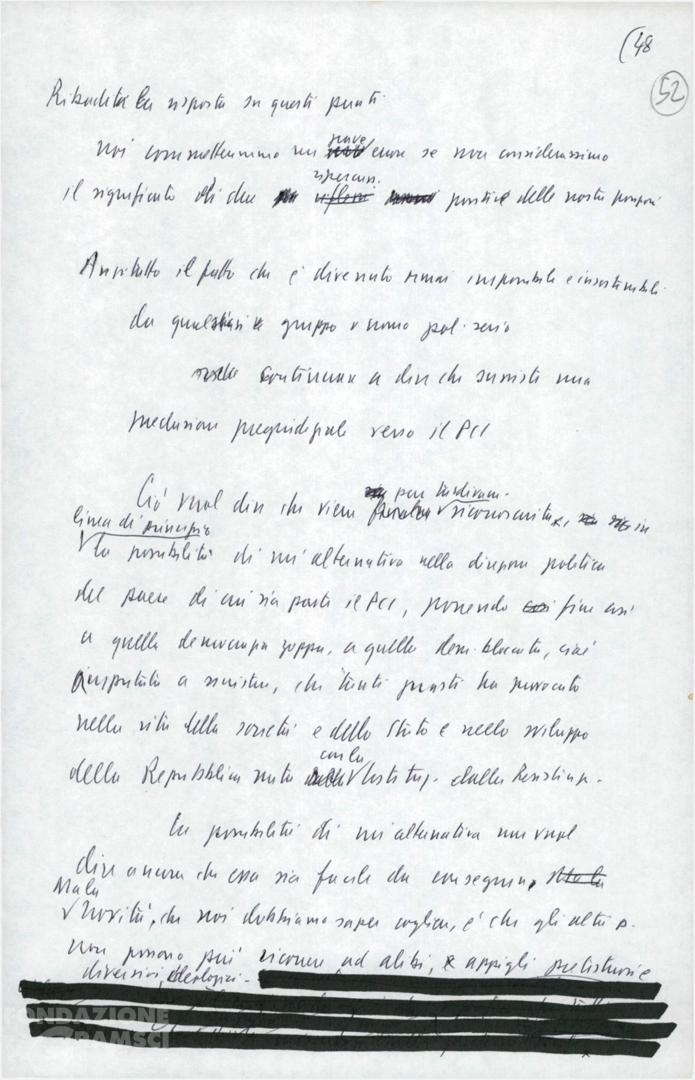 (48
52
Ribadita la risposta su questi punti
noi commetteremmo un grave errore se non considerassimo
il significato di due ripercuss. positive delle nostre
Anzitutto il fatto che è divenuto ormai impossibile e insostenibile
da qualsiasi gruppo o uomo pol. serio
continuare a dire che sussiste una
preclusione pregiudiziale verso il PCI
Ciò vuol dire che viene riconosciuta, in
linea di principio
la possibilità di un'alternativa nella direzione politica
del paese di cui sia parte il PCI, ponendo fine così
a quella democrazia zoppa, a quella dem. bloccata, cioè
a sinistra, che tanti guasti ha provocato
nella vita della società e dello Stato e nello sviluppo
della Repubblica nata con la dalla Resistenza.
La possibilità di un'alternativa non vuol
dire ancora che essa sia facile da conseguire,
Ma la
novità, che noi dobbiamo saper cogliere, è che gli altri p.
non possono più ricorrere ad alibi, appigli
diversivi ideologici.
FONDAZIONE
GRAMSCI